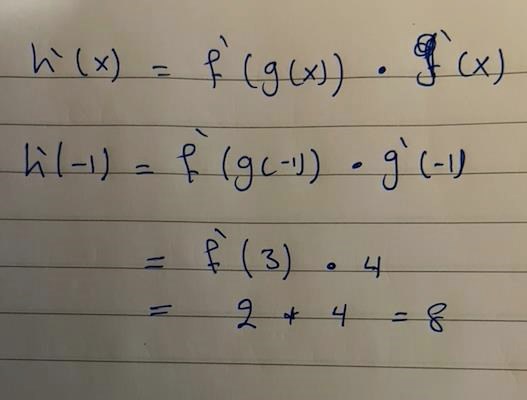 h`(x) = f`(g(x)) • g`(x)
h`(-1) = f`(g(-1)) • g`(-1)
= f`(3) • 4
= 2 * 4 = 8